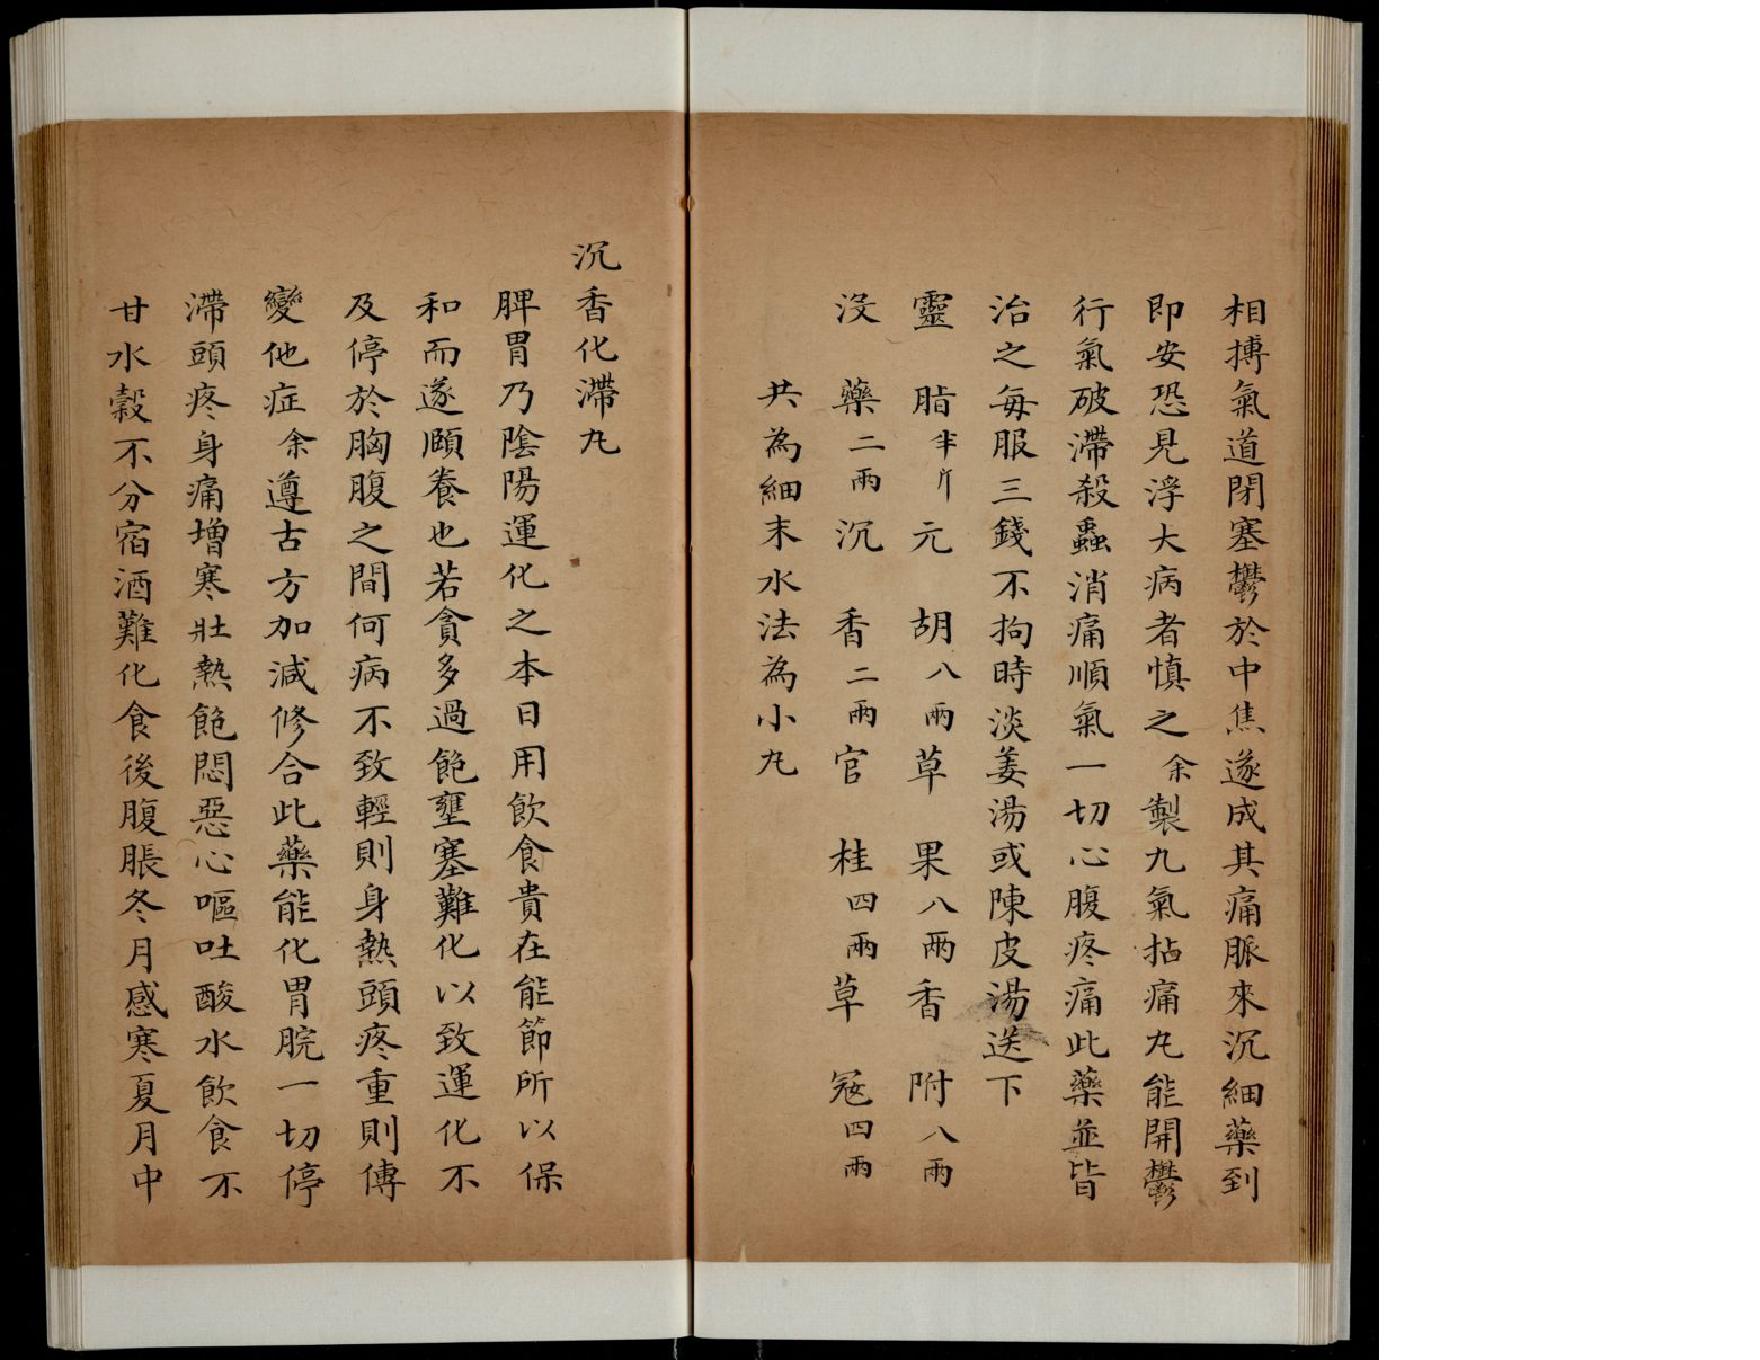 相搏氣道閉塞鬱於中焦遂成其痛脈來沉細藥到
即安恐見浮大病者慎之余製九氣拈痛丸能開鬱
行氣破滯殺蟲消痛順氣一切心腹疼痛此藥並皆
治之每服三錢不拘時淡姜湯或陳皮湯送下
靈脂半斤元胡八兩草果八兩香附八兩
沒藥二兩沉香二兩官桂四兩草寇四兩
共為細末水法為小丸
沉香化滯丸
脾胃乃陰陽運化之本日用飲食貴在能節所以保
和而遂頤養也若貪多過飽壅塞難化以致運化不
及停於胸腹之間何病不致輕則身熱頭疼重則傳
變他症余遵古方加減修合此藥能化胃脘一切停
滯頭疼身痛增寒壯熱飽悶惡心嘔吐酸水飲食不
甘水穀不分宿酒難化食後腹脹冬月感寒夏月中